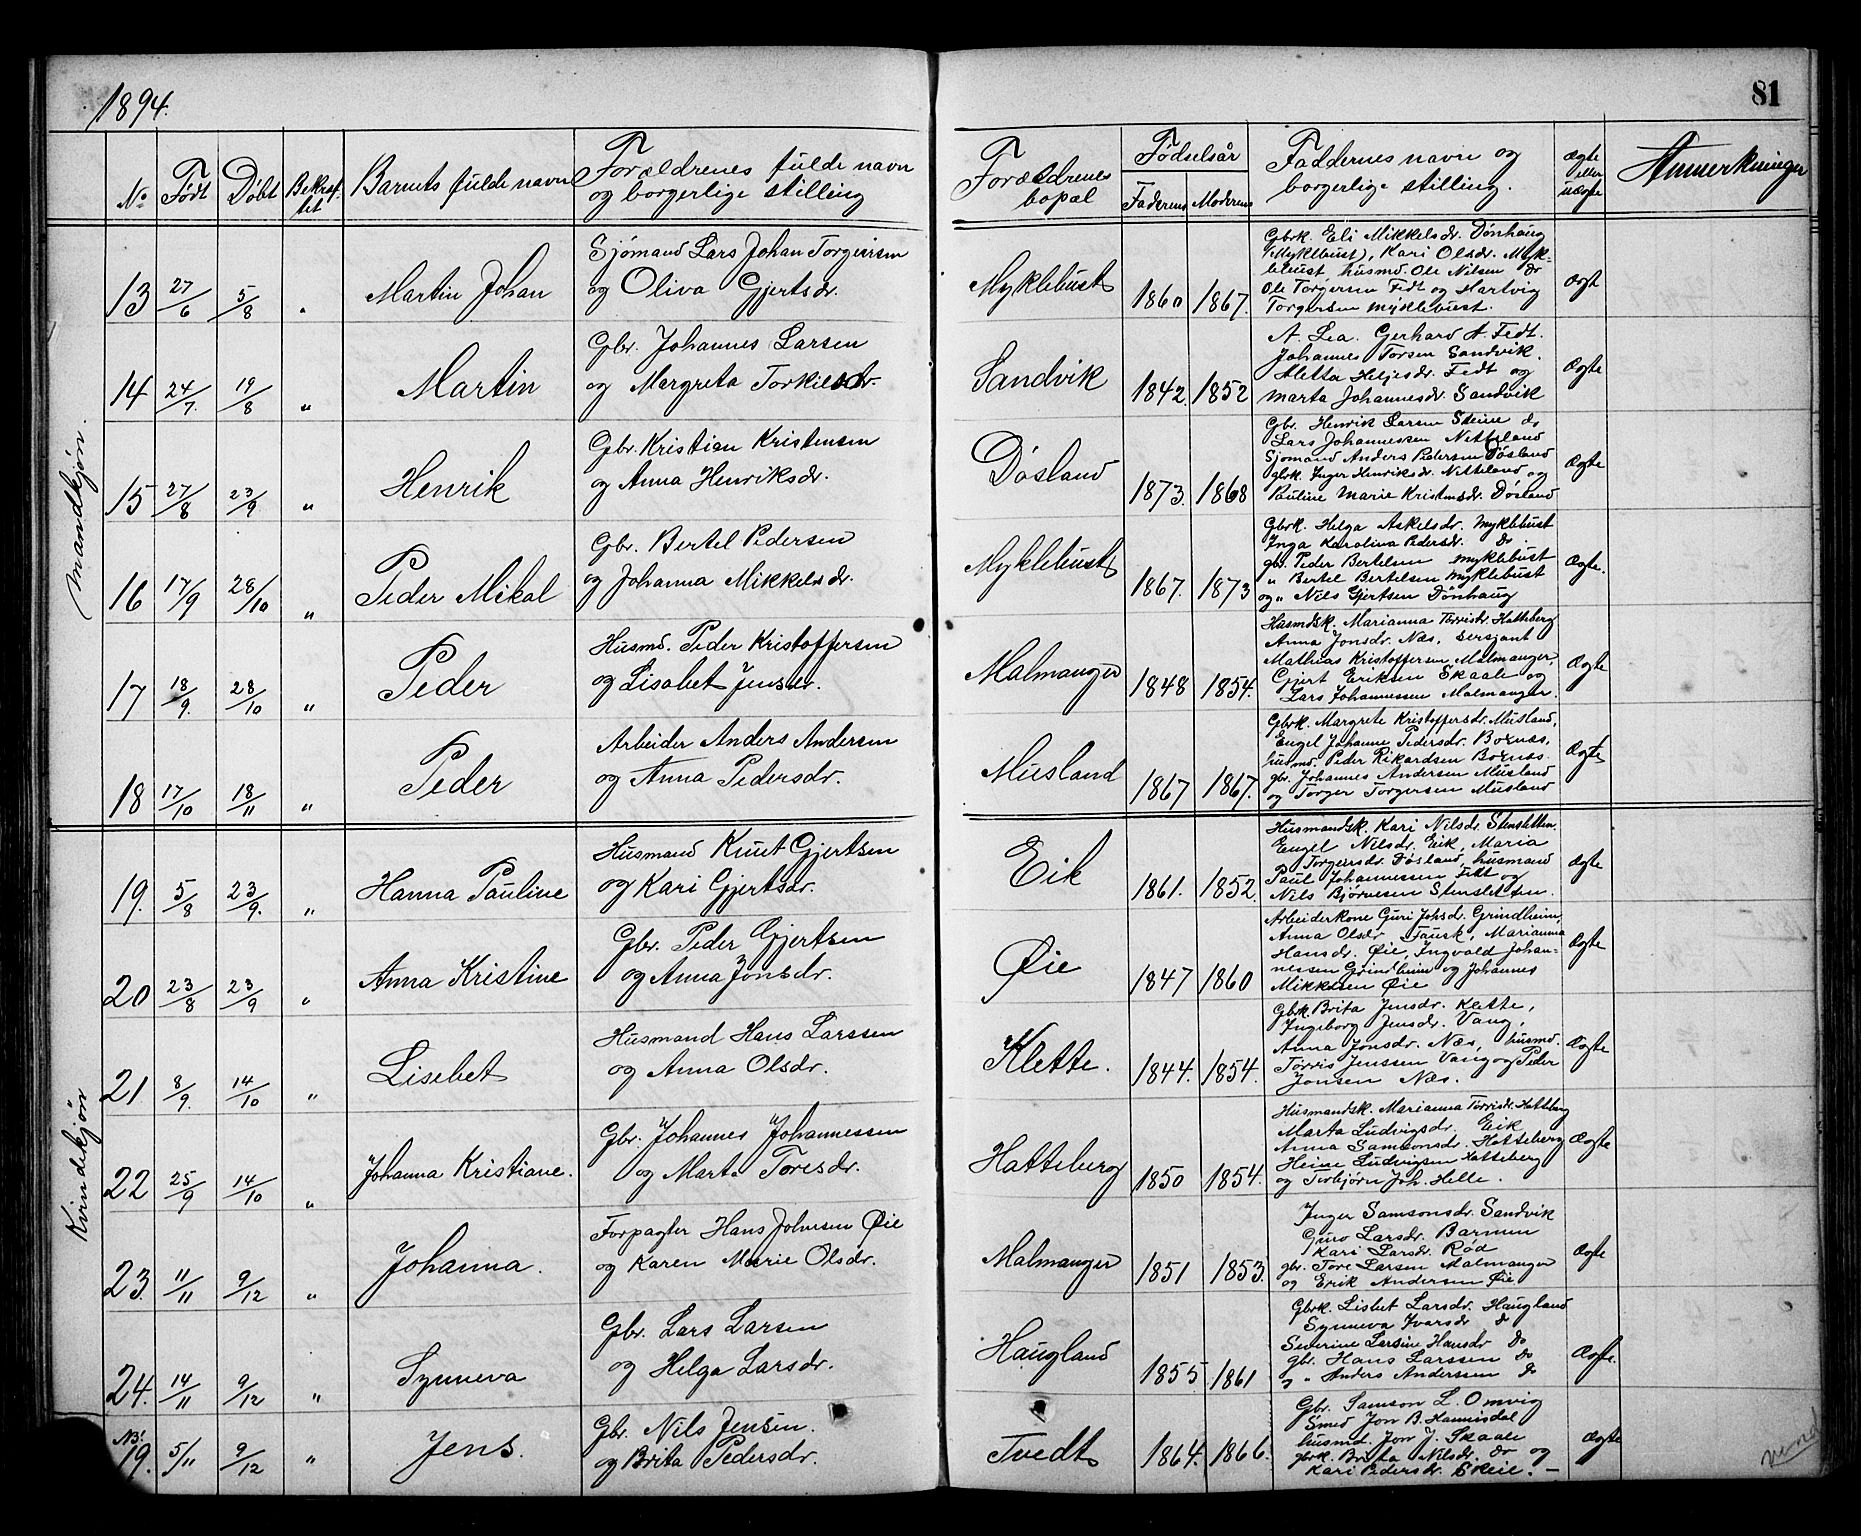 1894.
81
No
Født
Døbt
Bekræf-
tet
Barnets fulde navn
Forældrenes fulde navn
og borgerlige stilling
Forældrenes
bopæl
Fødselsår
Faderens
Moderens
Faddernes navn og
borgerlige stilling.
Ægte
eller
uægte
Anmerkninger
Mandkjøn.
13 27/6 5/8 " Martin Johan
Sjömand Lars Johan Torgeirsen
og Oliva Gjertsdr.
Myklebust 1860 1867.
Gbrk. Eli Mikkelsdr. Dönhaug
(Myklebust), Kari Olsdr. Myk-
lebust, husmd. Ole Nilsen do
Ole Torgersen Fedt og Hartvig
Torgersen Myklebust.
Ægt
14 24/7. 19/8 " Martin
Gbr. Johannes Larsen
og Margreta Torkilsdr.
Sandvik 1842. 1852
A. Lea. Gerhard A. Fedt.
Johannes Torsen Sandvik.
Aletta Heljesdr. Fedt og
Marta Johannesdr. Sandvik
Ægte
15 27/8 23/9 " Henrik
Gbr. Kristian Kristensen
og Anna Henriksdr.
Dösland 1873. 1868
Gbr. Henrik Larsen Steine do
Lars Johannessen Netteland
Sjömand Anders Pedersen Dösland
gbrk. Inger Henriksdr. Netteland og
Pauline Marie Kristensdr. Dösland
Ægte
16 17/9 28/10 " Peder Mikal
Gbr. Bertel Pedersen
og Johanna Mikkelsdr.
Myklebust 1867. 1873
Gbrk. Helga Askelsdr. Myklebust
Inga Karolina Pedersdr. do.
gbr. Peder Bertelsen Myklebust
" Bertel Bertelsen Myklebust
og " Nils Gjertsen Dönhaug
Ægte.
17 18/9. 28/10 " Peder
Husmd. Peder Kristoffersen
og Lisabet Jensdr.
Malmanger 1848 1854.
Husmdsk. Marianna Torrisdr. Hatteberg
Anna Jonsdr. Næs, sersjant
Mathias Kristoffersen Malmanger,
Gjert Eriksen Skaale og
Lars Johannessen Malmanger.
Ægte
18 17/10 18/11 " Peder
Arbeider Anders Andersen
og Anna Pedersdr.
Musland 1867 1867.
Gbrk. Margrete Kristoffersdr. Musland,
Engel Johanne Pedersdr. Bognæs,
husmd. Peder Rikardsen Bognæs
gbr. Johannes Andersen Musland
og Torger Torgersen Musland
Ægte
Kvindekjøn
19. 5/8 23/9. " Hanna Pauline
Husmand Knut Gjertsen
og Kari Gjertsdr.
Eik 1861. 1852.
Husmandsk. Kari Nilsdr. Stensletten.
Engel Nilsdr. Eik, Maria
Torgeirsdr. Dösland, husmand
Paul Johannessen Fedt og
Nils Björnesen Stensletten.
Ægte
20 23/8 23/9 " Anna Kristine
Gbr. Peder Gjertsen
og Anna Jonsdr.
Øie 1847 1860
Arbeiderkone Guri Johsdr. Grindheim,
Anna Olsdr. Fausk, Marianna
Hansdr. Øie, Ingvald Johan-
nessen Grindheim og Johannes
Mikkelsen Øie
Ægte
21 8/9. 14/10 " Lisebet
Husmand Hans Larssen
og Anna Olsdr.
Klette. 1844. 1854.
Gbk. Brita Jensdr. Klette,
Ingeborg Jensdr. Vang,
Anna Jonsdr. Næs, husmd.
Törris Jenssen Vang og Peder
Jonsen Næs.
Ægte
22 25/9 14/10 " Johanna Kristiane.
Gbr. Johannes Johannessen
og Marta Toresdr.
Hatteberg 1850 1854.
Husmandsk. Marianna Törrisdr. Hatteberg
Marta Ludvigsdr. Eik
Anna Samsonsdr. Hatteberg
Heine Ludvigsen Hatteberg
og Torbjörn Joh. Helle.
Ægte
23. 11/11 9/12 " Johanna.
Forpagter Hans Johnsen Øie
og Karen Marie Olsdr.
Malmanger 1851 1853.
Inger Samsonsdr. Sandvik
Guro Larsdr.
Kari Larsdr. Rød
gbr. Tore Larsen Malmanger
og Erik Andersen Øie
Ægte
24. 14/11 9/12 " Synneva
Gbr. Lars Larsen
og Helga Larsdr.
Haugland 1855 1861
Gbrk. Lisbet Larsdr. Haugland
Synneva Ivarsdr do
Severine Larsine Hansdr do
gbr. Hans Larssen do
og " Anders Anderssen do
Ægte.
NB!
19. 5/11 9/12 " Jens.
Gbr. Nils Jensen.
og Brita Pedersdr.
Tvedt 1864. 1866.
Gbr. Samson L. Omvig
Smed Jon B. Hannisdal
husmd. Jon J. Skaale
gbrk. Brita Nilsdr. do og
Kari Pedersdr. Skeie. –
Ægte
vend